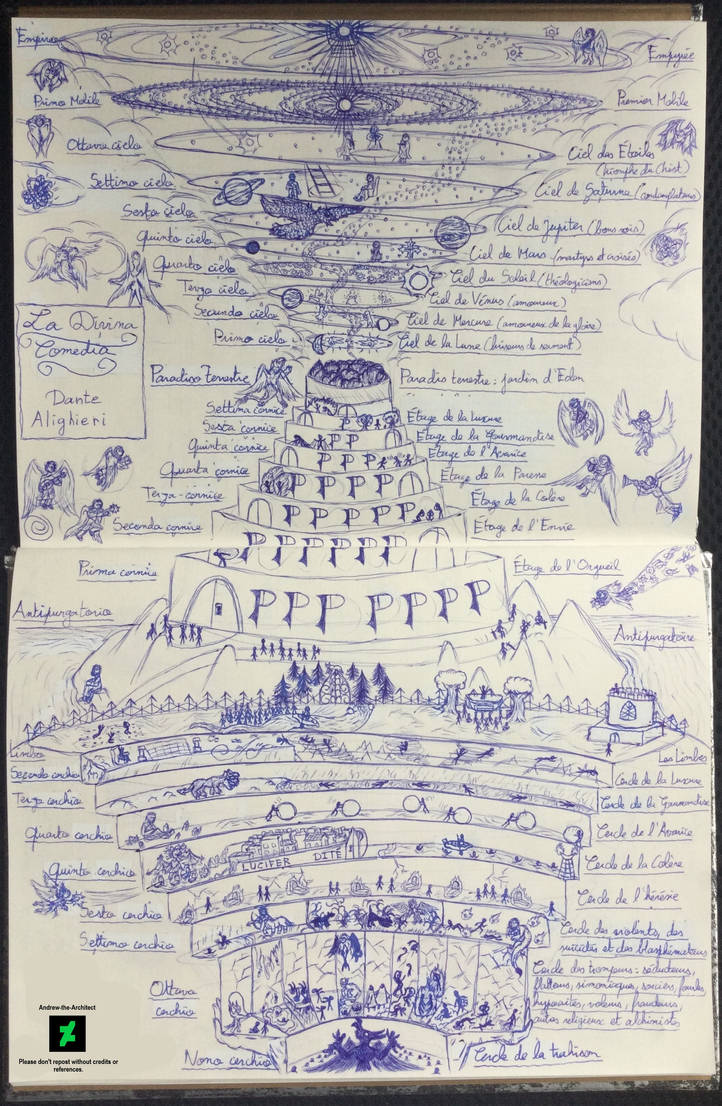 Empireo
Empyrée
Primo Mobile
Premier Mobile
Ottavo cielo
Ciel des Étoiles
(triomphe du Christ)
Settimo cielo
Ciel de Saturne (contemplateurs)
Sesto cielo
Ciel de Jupiter (bons rois)
Quinto cielo
Ciel de Mars (martyrs et croisés)
Quarto cielo
Ciel du Soleil (théologiens)
Terzo cielo
Ciel de Vénus (amoureux)
Secundo cielo
Ciel de Mercure (amoureux de la gloire)
Primo cielo
Ciel de la Lune (briseurs de serment)
La Divina
Comedia
Dante
Alighieri
Paradiso Terestre
Paradis terestre : jardin d'Eden
Settima cornice
Étage de la Luxure
Sesta cornice
Étage de la Gourmandise
P
Quinta cornice
Étage de l'Avarice
P P
Quarta cornice
Étage de la Parese
P P P
Terza cornice
Étage de la Colère
P P P P
Seconda cornice
Étage de l'Envie
P P P P P
Prima cornice
Étage de l'Orgueil
P P P P P P
Antipurgatorio
Antipurgatoire
P P P P P P P
Limbo
Les Limbes
Secondo cerchio
Cercle de la Luxure
Terzo cerchio
Cercle de la Gourmandise
Quarto cerchio
Cercle de l'Avarice
LUCIFER DITE
Quinto cerchio
Cercle de la Colère
Sesto cerchio
Cercle de l'hérésie
Settimo cerchio
Cercle des violents, des
suicidés et des blasphémateurs
Ottavo
cerchio
Cercle des trompeurs : séducteurs,
flatteurs, simoniaques, sorciers,
hypocrites, voleurs, fraudeurs,
autres religieux et alchimistes
Nono cerchio
Cercle de la trahison
Andrew-the-Architect
Please don't repost without credits or
references.